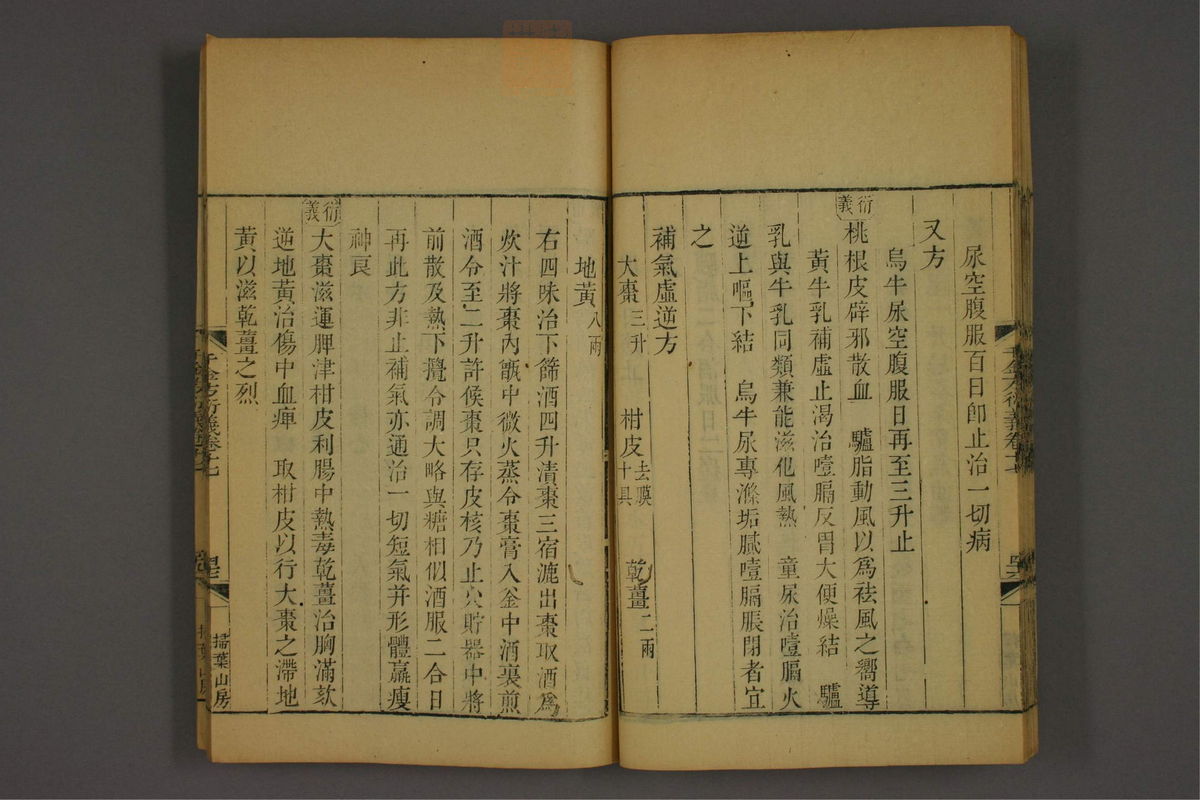 尿空腹服百日卽止治一切病
又方
烏牛尿空腹服日再至三升止
衍義
桃根皮辟邪散血　驢脂動風以爲祛風之嚮導
黃牛乳補虛止渴治噎膈反胃大便燥結　驢
乳與牛乳同類兼能滋化風熱　童尿治噎膈火
逆上嘔下結　烏牛尿專滌垢膩噎膈脹閉者宜
之
補氣虛逆方
大棗三升　柑皮去膜十具　乾薑二兩
地黃八兩
右四味治下篩酒四升漬棗三宿漉出棗取酒爲
炊汁將棗內甑中微火蒸令棗膏入釜中酒裏煎
酒令至二升許候棗只存皮核乃止穴貯器中將
前散及熱下攪令調大略與糖相似酒服二合日
再此方非止補氣亦通治一切短氣并形體羸瘦
神良
衍義
大棗滋運脾津柑皮利腸中熱毒乾薑治胸滿欬
逆地黃治傷中血痺　取柑皮以行大棗之滯地
黃以滋乾薑之烈
千金方衍義卷十七
掃葉山房